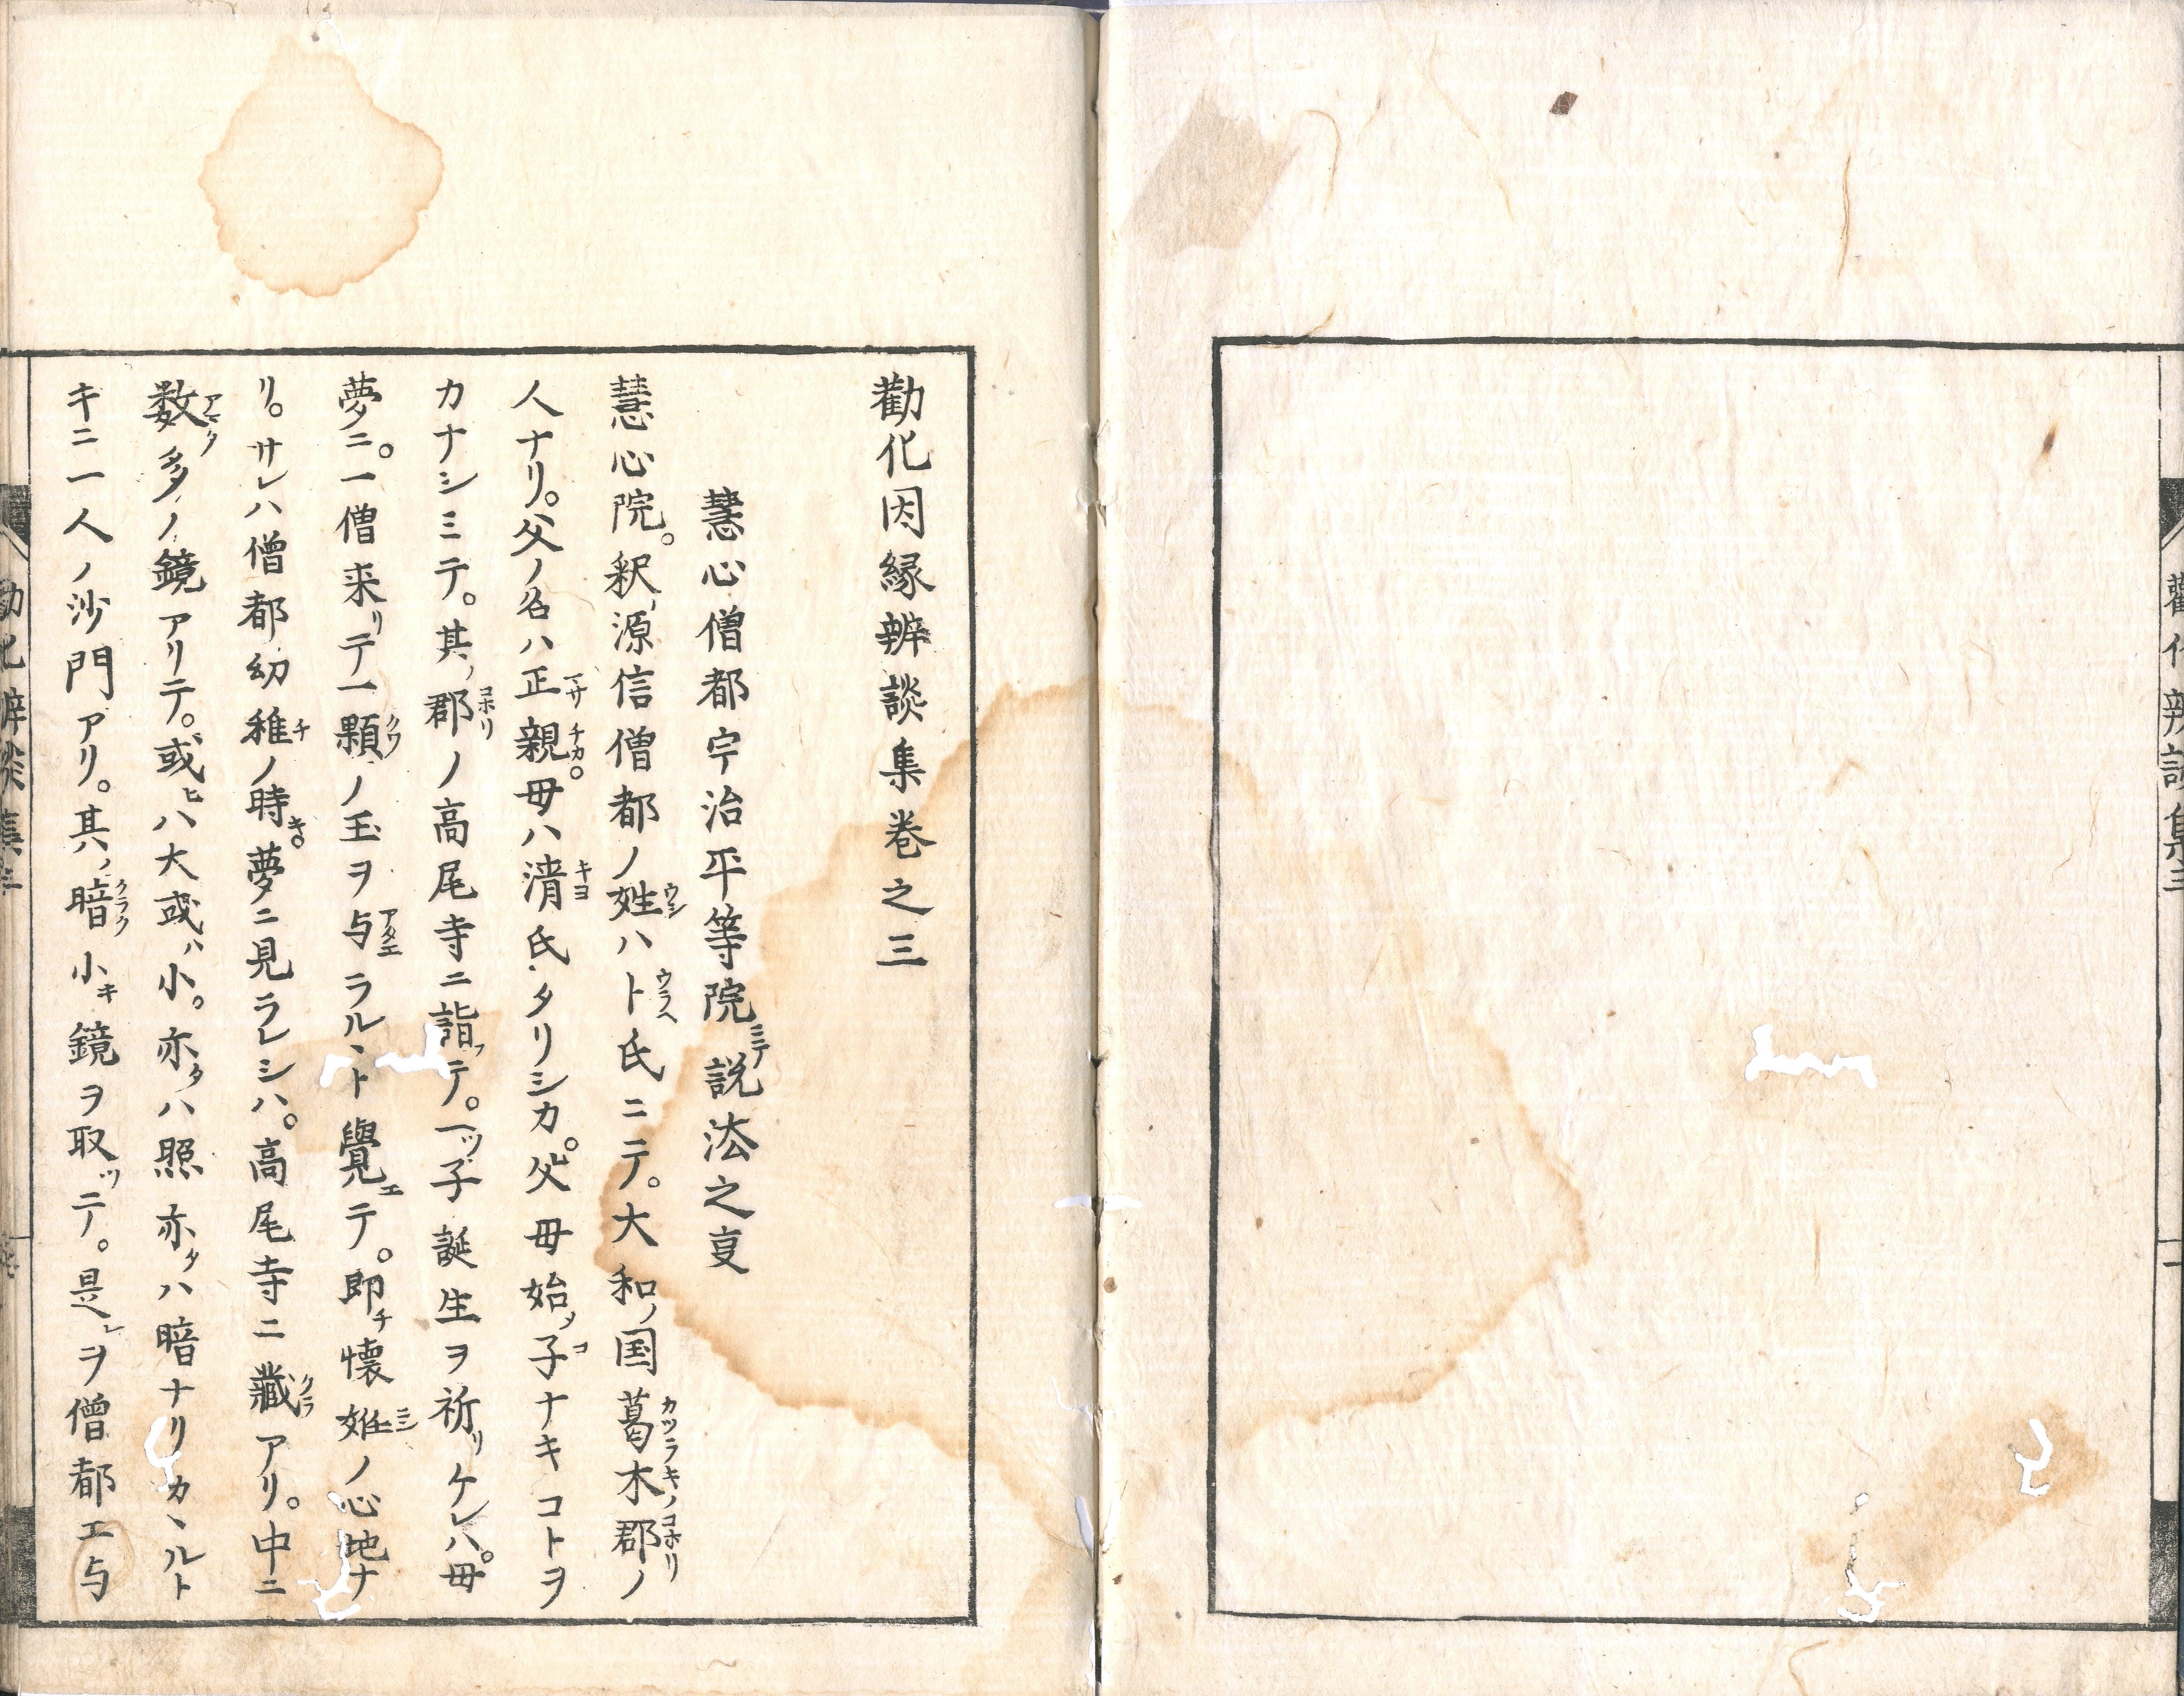 勸化辨談集三
一
勸化因縁辨談集卷之三
慧心僧都宇治平等院ニテ説法之叓
慧心院。釈ノ源信僧都ノ姓ハト氏ニテ。大和ノ国葛木郡ノ
人ナリ。父ノ名ハ正親。母ハ清氏タリシカ。父母始メ子ナキコトヲ
カナシミテ。其ノ郡ノ高尾寺ニ詣フテ。一ツ子誕生ヲ祈リケレハ。母
夢ニ。一僧来リテ一顆ノ玉ヲ与ラルヽト覺エテ。即チ懐姙ノ心地ナ
リ。サレハ僧都幼稚ノ時キ。夢ニ見ラレシハ。高尾寺ニ藏アリ。中ニ
数多ノ鏡アリテ。或ヒハ大或ハ小。亦タハ照亦タハ暗ナリカヽルト
キニ一人ノ沙門アリ。其ノ暗小キ鏡ヲ取ツテ。是レヲ僧都エ与